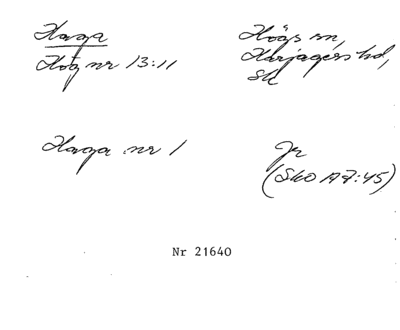 Haga
Hög nr 13:11
Högs sn,
Harjagers hd,
Sk
Haga nr 1
Jr
(SkO 17 7:45)
Nr 21640